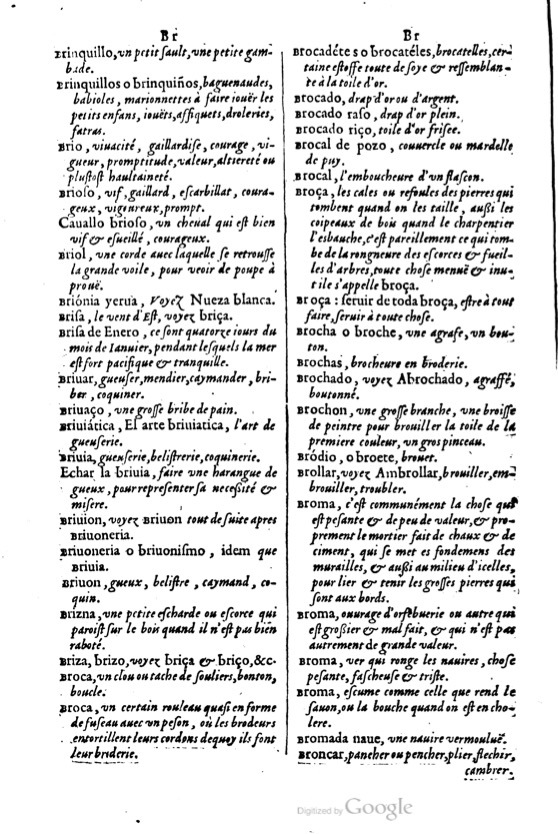 Br
Brinquillo, vn petit sault, vne petite gam-
bade.
Brinquillos o brinquiños, baguenaudes,
babioles, marionnettes à faire iouër les
petits enfans, iouëts, affiquets, droleries,
fatras.
Brio, viuacité, gaillardise, courage, vi-
gueur, promptitude, valeur, altiereté ou
plustost haultaineté.
Brioso, vif, gaillard, escarbillat, coura-
geux, vigoureux, prompt.
Cauallo brioso, vn cheual qui est bien
vif & esueillé, courageux.
Briol, vne corde auec laquelle se retrousse
la grande voile, pour veoir de poupe à
prouë.
Briónia yerua, Voyez Nueza blanca.
Brisa, le vent d'Est, voyez briça.
Brisa de Enero, ce sont quatorze iours du
mois de Ianuier, pendant lesquels la mer
est fort pacifique & tranquille.
Briuar, gueuser, mendier, caymander, bri-
ber, coquiner.
Briuaço, vne grosse bribe de pain.
Briuiática, El arte briuiatica, l'art de
gueuserie.
Briuia, gueuserie, belistrerie, coquinerie.
Echar la briuia, faire vne harangue de
gueux, pour representer sa necessité &
misere.
Briuion, voyez Briuon tout de suite apres
Briuoneria.
Briuoneria o briuonismo, idem que
Briuia.
Briuon, gueux, belistre, caymand, co-
quin.
Brizna, vne petite escharde ou escorce qui
paroist sur le bois quand il n'est pas bien
raboté.
Briza, brizo, voyez briça & briço, &c.
Broca, vn clou ou tache de souliers, bouton,
boucle.
Broca, vn certain rouleau quasi en forme
de fuseau auec vn peson, où les brodeurs
entortillent leurs cordons dequoy ils font
leur broderie.
Br
Brocadétes o brocatéles, brocatelles, cer-
taine estoffe toute de soye & ressemblan-
te à la toile d'or.
Brocado, drap d'or ou d'argent.
Brocado raso, drap d'or plein.
Brocado riço, toile d'or frisee.
Brocal de pozo, couuercle ou mardelle
de puy.
Brocal, l'emboucheure d'vn flascon.
Broça, les cales ou refoules des pierres qui
tombent quand on les taille, aussi les
coipeaux de bois quand le charpentier
l'esbauche, c'est pareillement ce qui tom-
be de la rongneure des escorces & fueil-
les d'arbres, toute chose menuë & inu-
tile s'appelle broça.
Broça: seruir de toda broça, estre à tout
faire, seruir à toute chose.
Brocha o broche, vne agrafe, vn bou-
ton.
Brochas, brocheure en broderie.
Brochado, voyez Abrochado, agraffé,
boutonné.
Brochon, vne grosse branche, vne broisse
de peintre pour brouiller la toile de la
premiere couleur, vn gros pinceau.
Bródio, o broete, brouet.
Brollar, voyez Ambrollar, brouiller, em-
brouiller, troubler.
Broma, c'est communément la chose qui
est pesante & de peu de valeur, & pro-
prement le mortier fait de chaux & de
ciment, qui se met es fondemens des
murailles, & aussi au milieu d'icelles,
pour lier & tenir les grosses pierres qui
sont aux bords.
Broma, ouurage d'orfebuerie ou autre qui
est grossier & mal fait, & qui n'est pas
autrement de grande valeur.
Broma, ver qui ronge les nauires, chose
pesante, fascheuse & triste.
Broma, escume comme celle que rend le
sauon, ou la bouche quand on est en cho-
lere.
Bromada naue, vne nauire vermouluë.
Broncar, pancher ou pencher, plier, flechir,
cambrer.
Digitized by Google